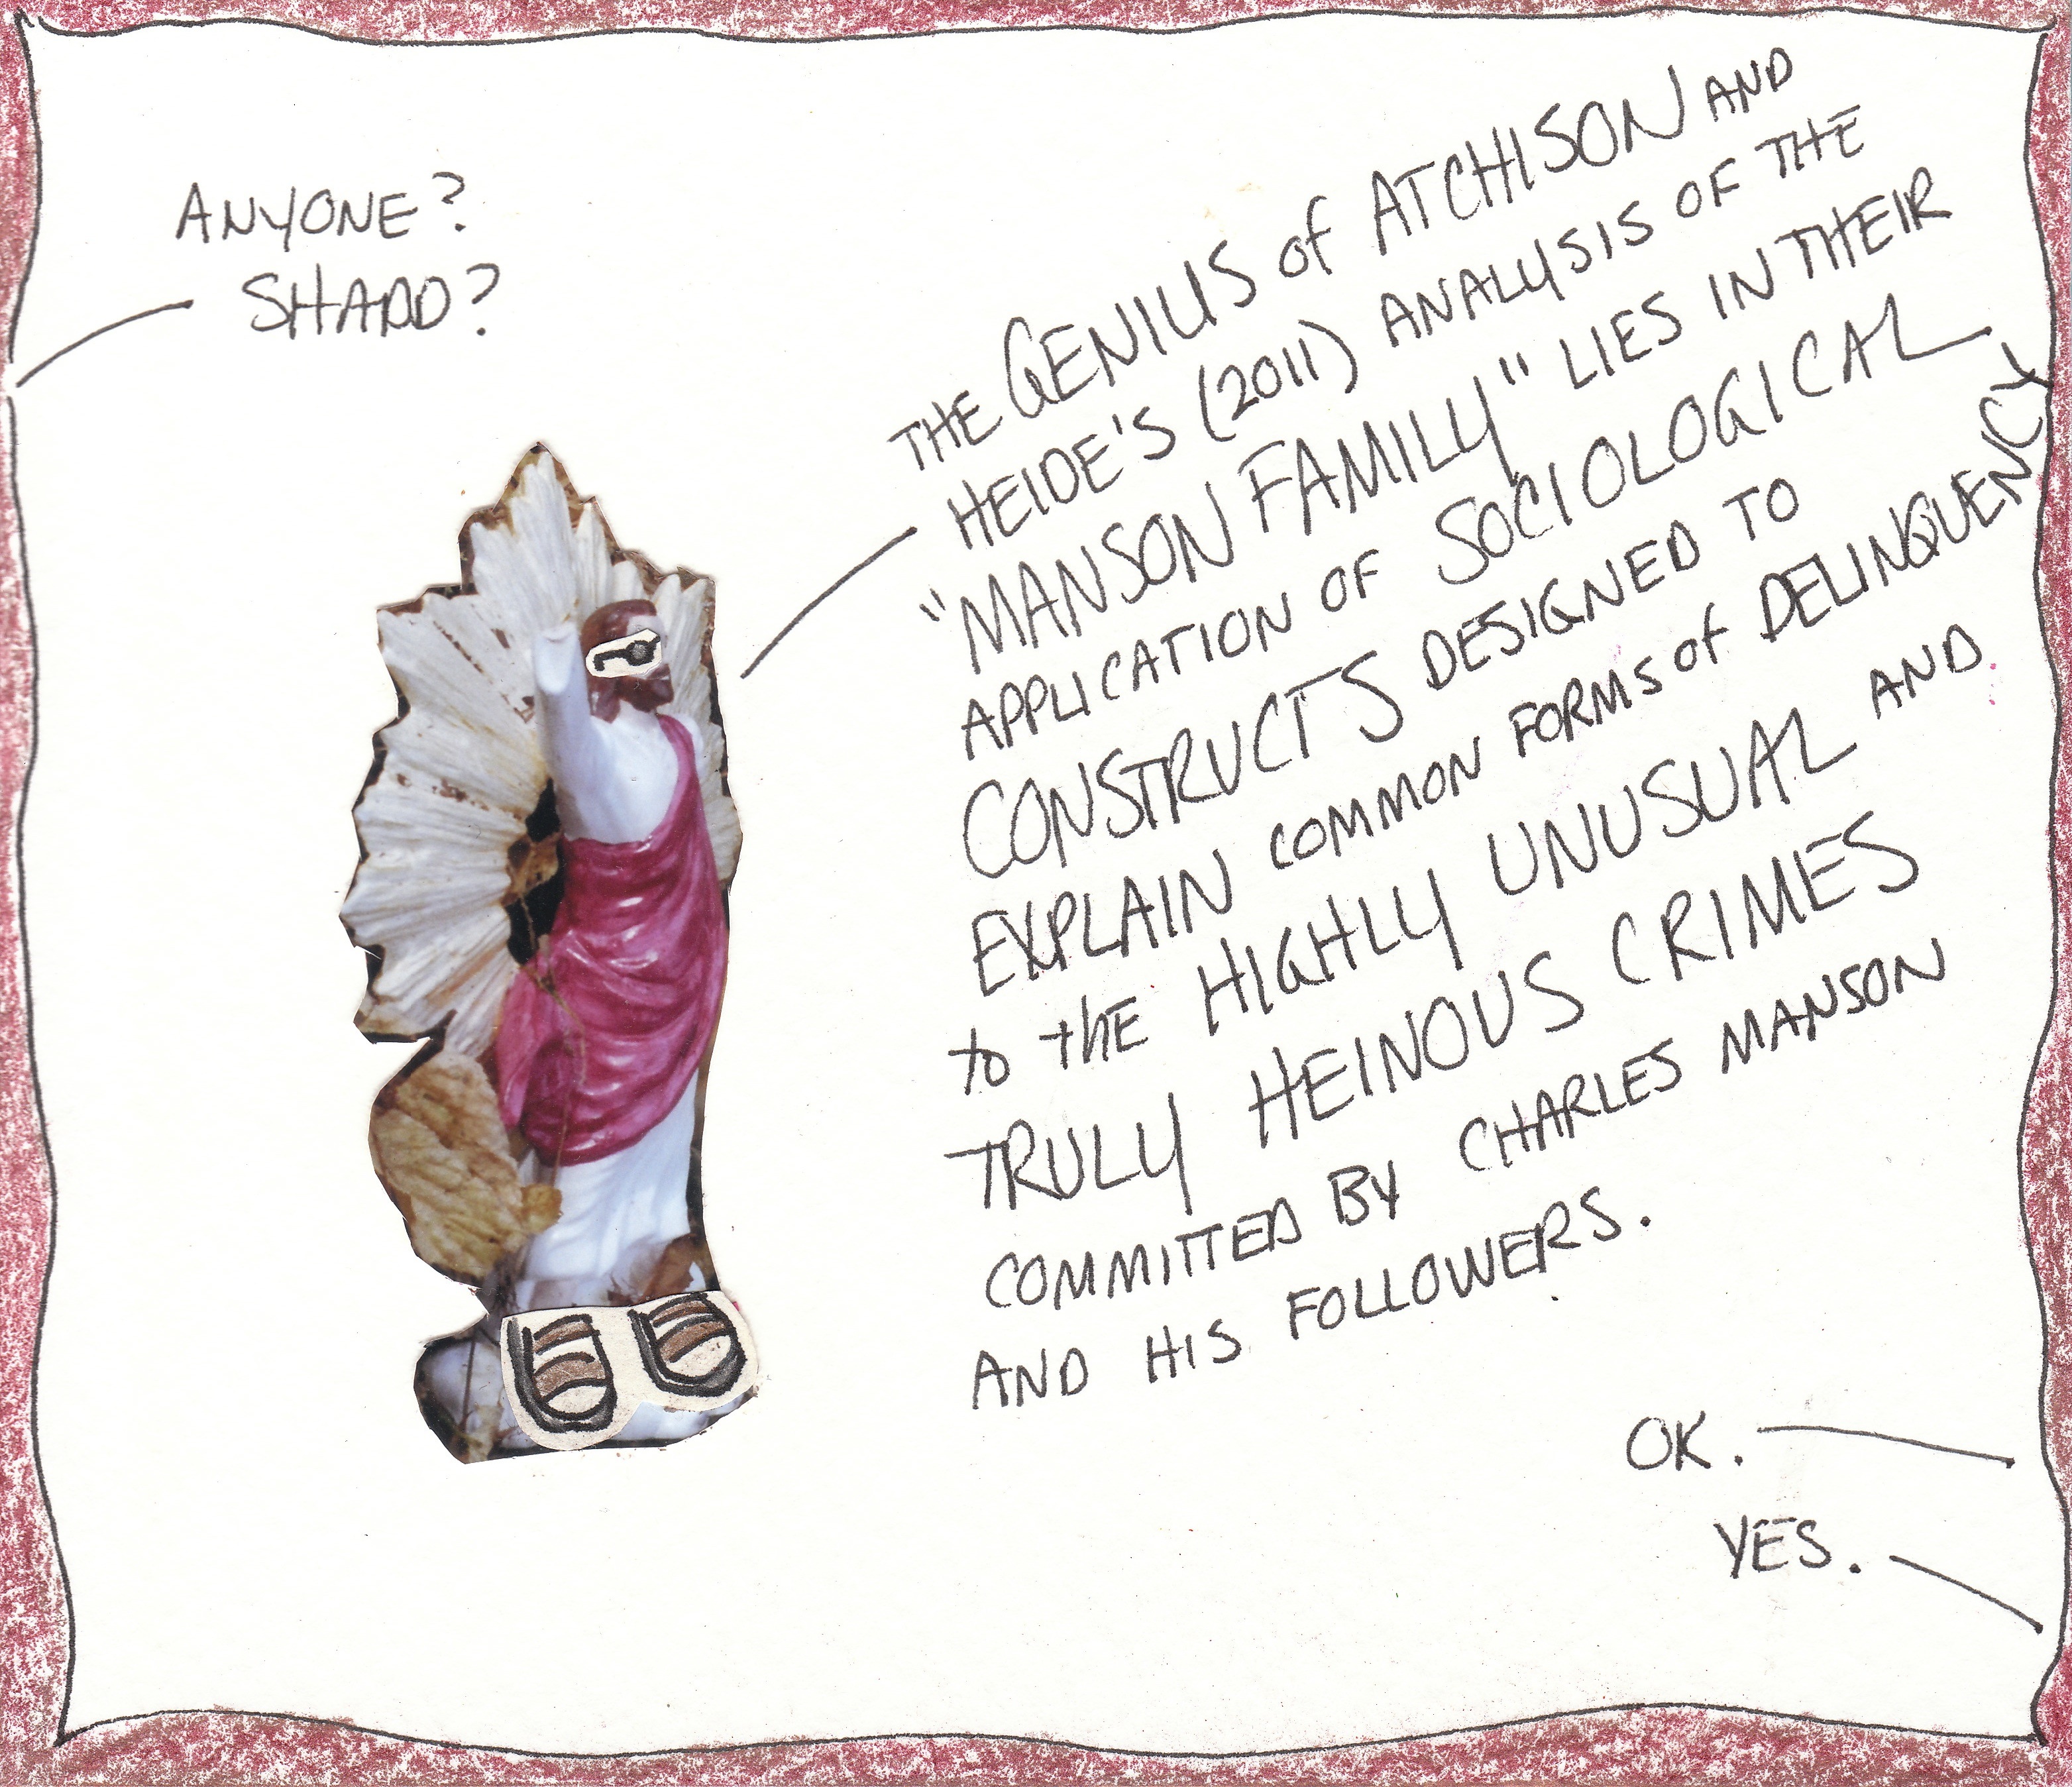 ANYONE?
SHADD?
THE GENIUS of ATCHISON AND
HEIDE'S (2011) ANALYSIS OF THE
"MANSON FAMILY" LIES IN THEIR
APPLICATION OF SOCIOLOGICAL
CONSTRUCTS DESIGNED TO
EXPLAIN COMMON FORMS of DELINQUENCY
to the HIGHLY UNUSUAL AND
TRULY HEINOUS CRIMES
COMMITTED BY CHARLES MANSON
AND HIS FOLLOWERS.
OK.
YES.